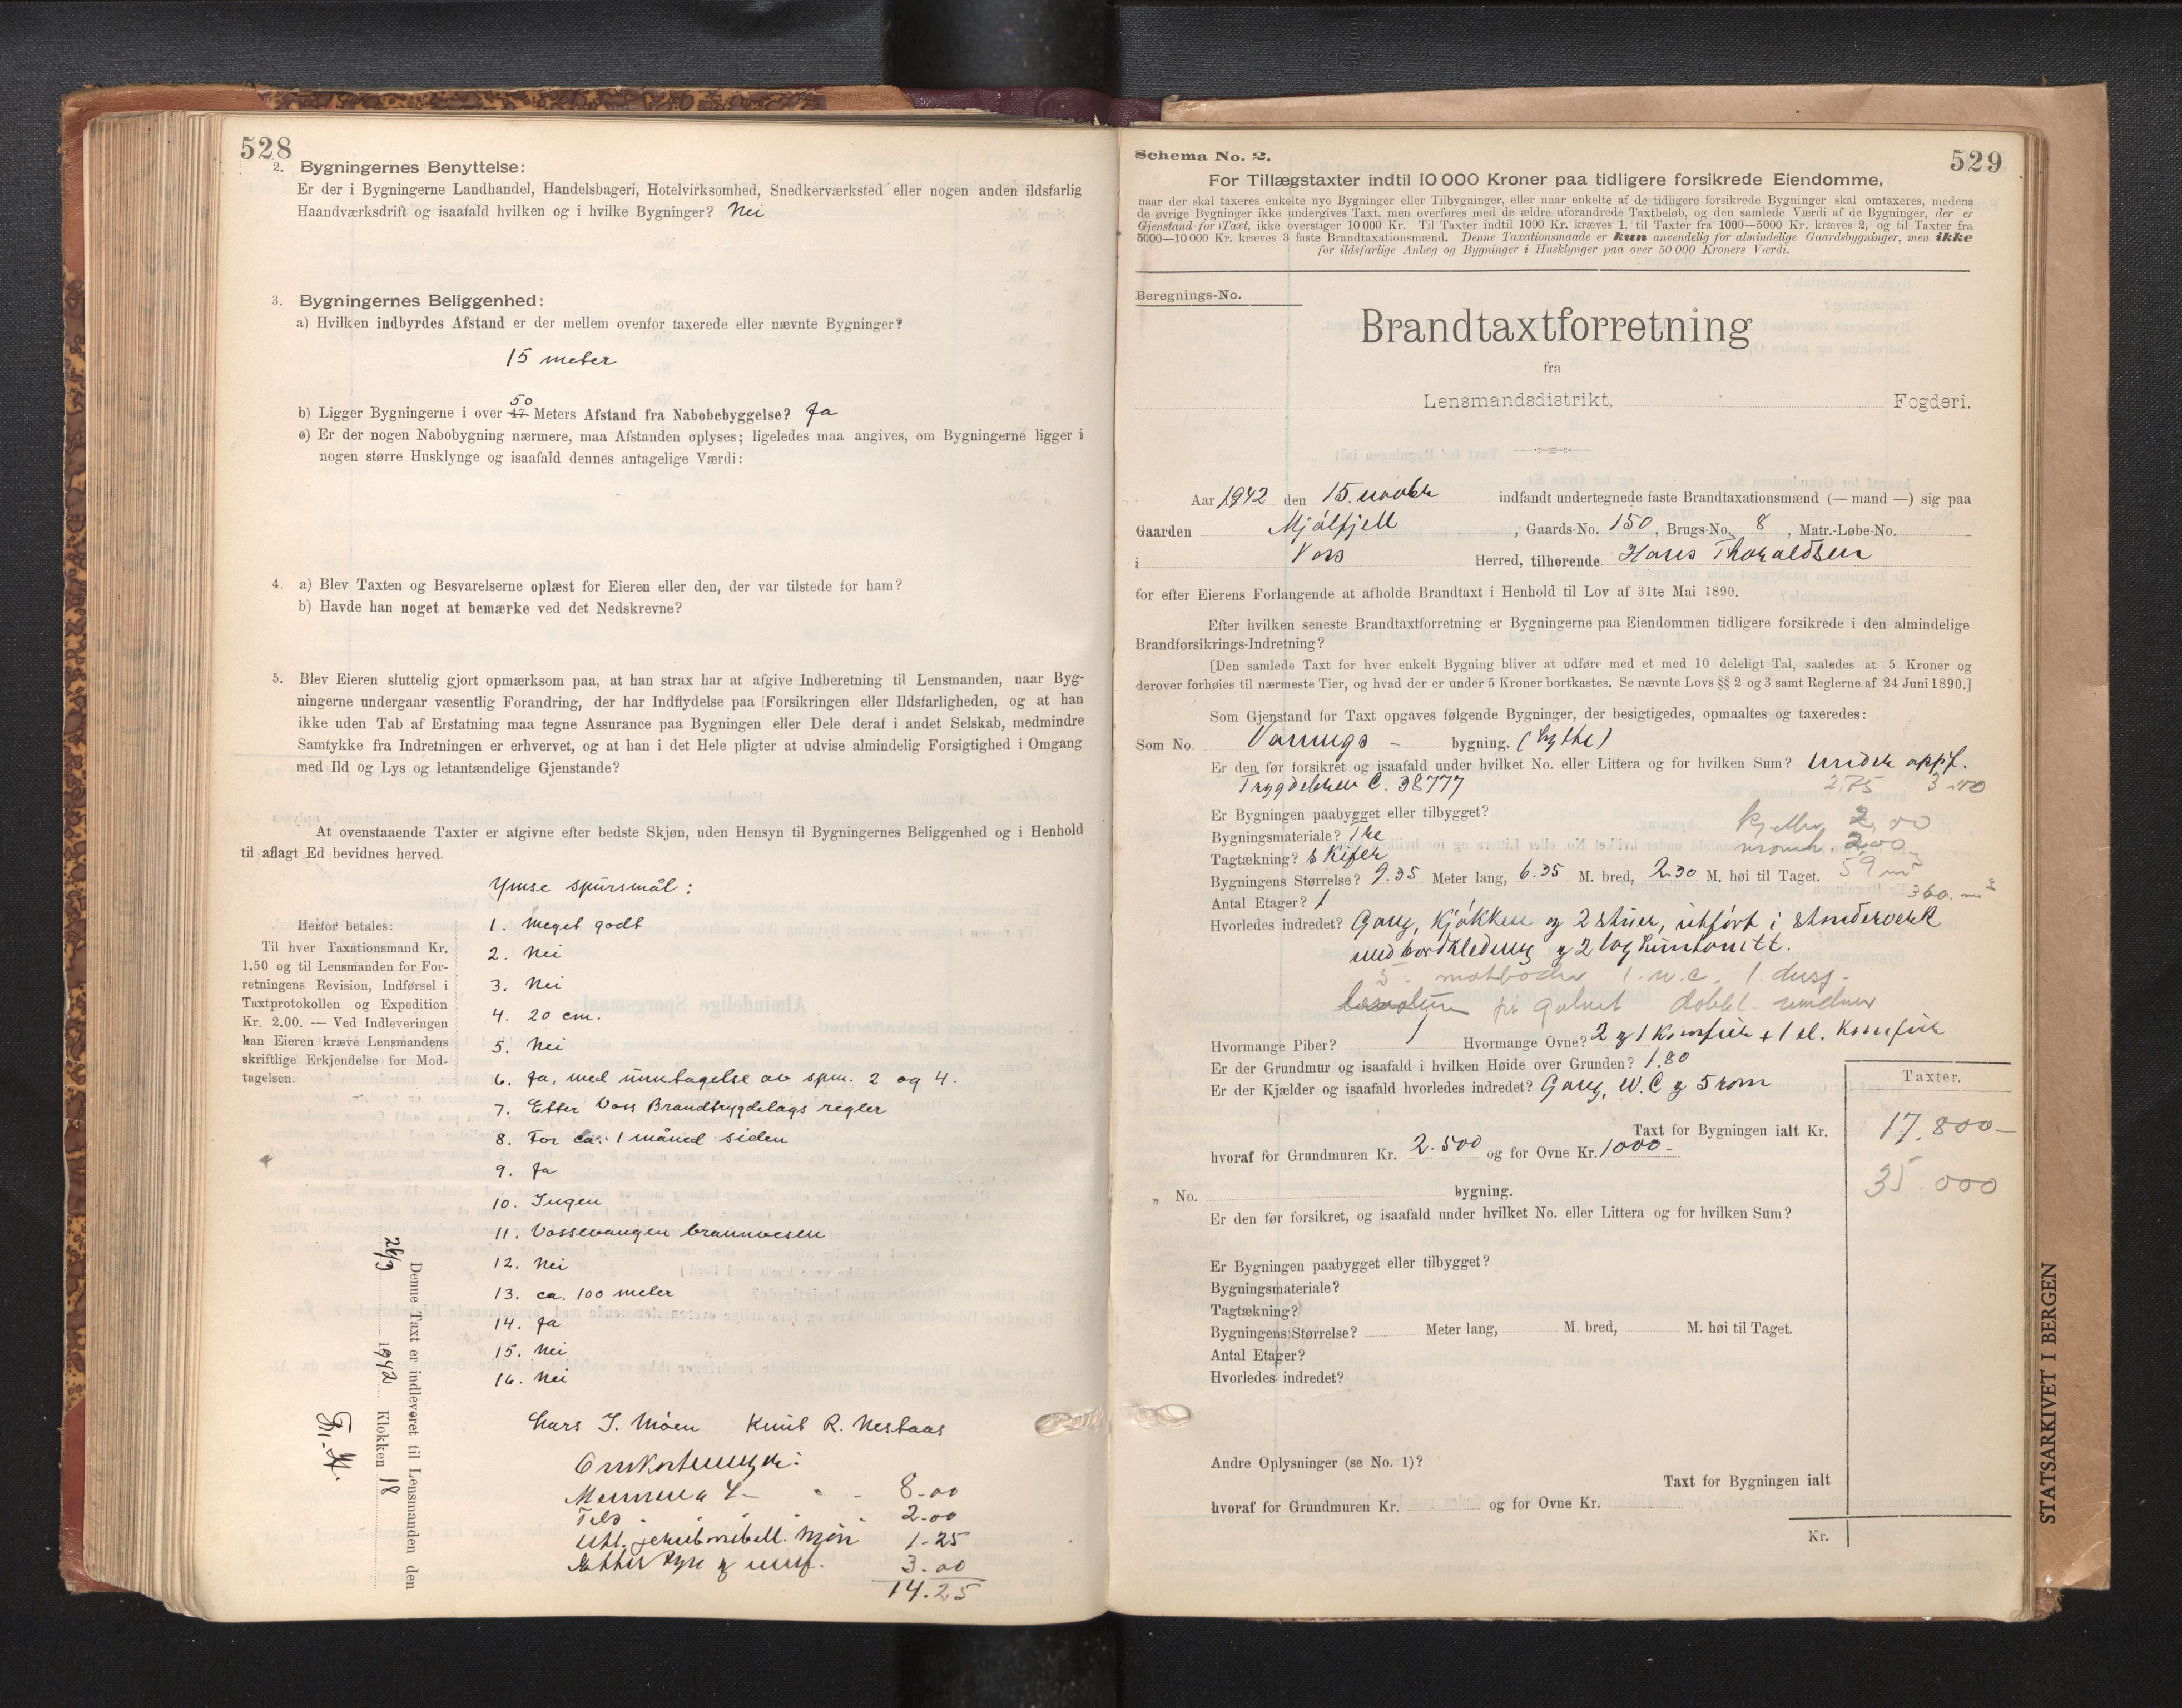 528
2. Bygningernes Benyttelse:
Er der i Bygningerne Landhandel, Handelsbageri, Hotelvirksomhed, Snedkerværksted eller nogen anden ildsfarlig
Haandværksdrift og isaafald hvilken og i hvilke Bygninger? Nei
3. Bygningernes Beliggenhed:
a) Hvilken indbyrdes Afstand er der mellem ovenfor taxerede eller nævnte Bygninger?
15 meter
50
b) Ligger Bygningerne i over 47 Meters Afstand fra Nabobebyggelse? Ja
c) Er der nogen Nabobygning nærmere, maa Afstanden oplyses; ligeledes maa angives, om Bygningerne ligger i
nogen større Husklynge og isaafald dennes antagelige Værdi:
4. a) Blev Taxten og Besvarelserne oplæst for Eieren eller den, der var tilstede for ham?
b) Havde han noget at bemærke ved det Nedskrevne?
5. Blev Eieren sluttelig gjort opmærksom paa, at han strax har at afgive Indberetning til Lensmanden, naar Byg-
ningerne undergaar væsentlig Forandring, der har Indflydelse paa Forsikringen eller Ildsfarligheden, og at han
ikke uden Tab af Erstatning maa tegne Assurance paa Bygningen eller Dele deraf i andet Selskab, medmindre
Samtykke fra Indretningen er erhvervet, og at han i det Hele pligter at udvise almindelig Forsigtighed i Omgang
med Ild og Lys og letantændelige Gjenstande?
At ovenstaaende Taxter er afgivne efter bedste Skjøn, uden Hensyn til Bygningernes Beliggenhed og i Henhold
til aflagt Ed bevidnes herved.
Ymse spursmål:
1. Meget godt
2. Nei
3. Nei
4. 20 cm.
5. Nei
6. Ja, med unntagelse av spm. 2 og 4.
7. Etter Voss Brandtrygdelags regler
8. For ca. 1 måned siden
9. Ja
10. Ingen
11. Vossevangen brannvesen
12. Nei
13. ca. 100 meter
14. Ja
15. Nei
16. Nei
Herfor betales:
Til hver Taxationsmand Kr.
1.50 og til Lensmanden for For-
retningens Revision, Indførsel i
Taxtprotokollen og Expedition
Kr. 2.00. — Ved Indleveringen
kan Eieren kræve Lensmandens
skriftlige Erkjendelse for Mod-
tagelsen.
Denne Taxt er indleveret til Lensmanden den
26/9 1942 Klokken 18
Lars J. Møen Knut R. Nestaas
Omkostninger:
8-00
2-00
1-25
3-00
14.25
529
Schema No. 2.
For Tillægstaxter indtil 10 000 Kroner paa tidligere forsikrede Eiendomme,
naar der skal taxeres enkelte nye Bygninger eller Tilbygninger, eller naar enkelte af de tidligere forsikrede Bygninger skal omtaxeres, medens
de øvrige Bygninger ikke undergives Taxt, men overføres med de ældre uforandrede Taxtbeløb, og den samlede Værdi af de Bygninger, der er
Gjenstand for Taxt, ikke overstiger 10 000 Kr. Til Taxter indtil 1000 Kr. kræves 1, til Taxter fra 1000—5000 Kr. kræves 2, og til Taxter fra
5000—10 000 Kr. kræves 3 faste Brandtaxationsmænd. Denne Taxationsmaade er kun anvendelig for almindelige Gaardsbygninger, men ikke
for ildsfarlige Anlæg og Bygninger i Husklynger paa over 50 000 Kroners Værdi.
Beregnings-No.
Brandtaxtforretning
fra
Lensmandsdistrikt, Fogderi.
Aar 1942 den 15. novbr indfandt undertegnede faste Brandtaxationsmænd (— mand —) sig paa
Gaarden Mjølfjell, Gaards-No. 150, Brugs-No. 8, Matr.-Løbe-No.
i Voss Herred, tilhørende Hans Thoraldsen
for efter Eierens Forlangende at afholde Brandtaxt i Henhold til Lov af 31te Mai 1890.
Efter hvilken seneste Brandtaxtforretning er Bygningerne paa Eiendommen tidligere forsikrede i den almindelige
Brandforsikrings-Indretning?
[Den samlede Taxt for hver enkelt Bygning bliver at udføre med et med 10 deleligt Tal, saaledes at 5 Kroner og
derover forhøies til nærmeste Tier, og hvad der er under 5 Kroner bortkastes. Se nævnte Lovs §§ 2 og 3 samt Reglerne af 24 Juni 1890.]
Som Gjenstand for Taxt opgaves følgende Bygninger, der besigtigedes, opmaaltes og taxeredes:
Som No. Vånings - bygning. (hytte)
Er den før forsikret og isaafald under hvilket No. eller Littera og for hvilken Sum? under oppf.
C. 38777 2.75 3-00
Er Bygningen paabygget eller tilbygget?
kjeller 2,00
Bygningsmateriale? Tre
2.00
Tagtækning? Skifer
Bygningens Størrelse? 9.35 Meter lang, 6.35 M. bred, 2.30 M. høi til Taget. 59 m²
Antal Etager? 1 360. m³
Hvorledes indredet? Gang, Kjøkken og 2 stuer, utført i stenderverk
med bordkledning og 2 lag huntonitt.
5 matboder 1 w.c. 1 dusj.
på gulvet dobbl. vinduer
Hvormange Piber? 1 Hvormange Ovne? 2 og 1 Komfur + 1 el. Komfur
Er der Grundmur og isaafald i hvilken Høide over Grunden? 1.80
Er der Kjælder og isaafald hvorledes indredet? Gang, W.C og 5 rom
Taxter.
Taxt for Bygningen ialt Kr. 17.800-
hvoraf for Grundmuren Kr. 2.500 og for Ovne Kr. 1000-
35.000
„ No. bygning.
Er den før forsikret, og isaafald under hvilket No. eller Littera og for hvilken Sum?
Er Bygningen paabygget eller tilbygget?
Bygningsmateriale?
Tagtækning?
Bygningens Størrelse? Meter lang, M. bred, M. høi til Taget.
Antal Etager?
Hvorledes indredet?
Andre Oplysninger (se No. 1)?
Taxt for Bygningen ialt
hvoraf for Grundmuren Kr. og for Ovne Kr.
Kr.
STATSARKIVET I BERGEN